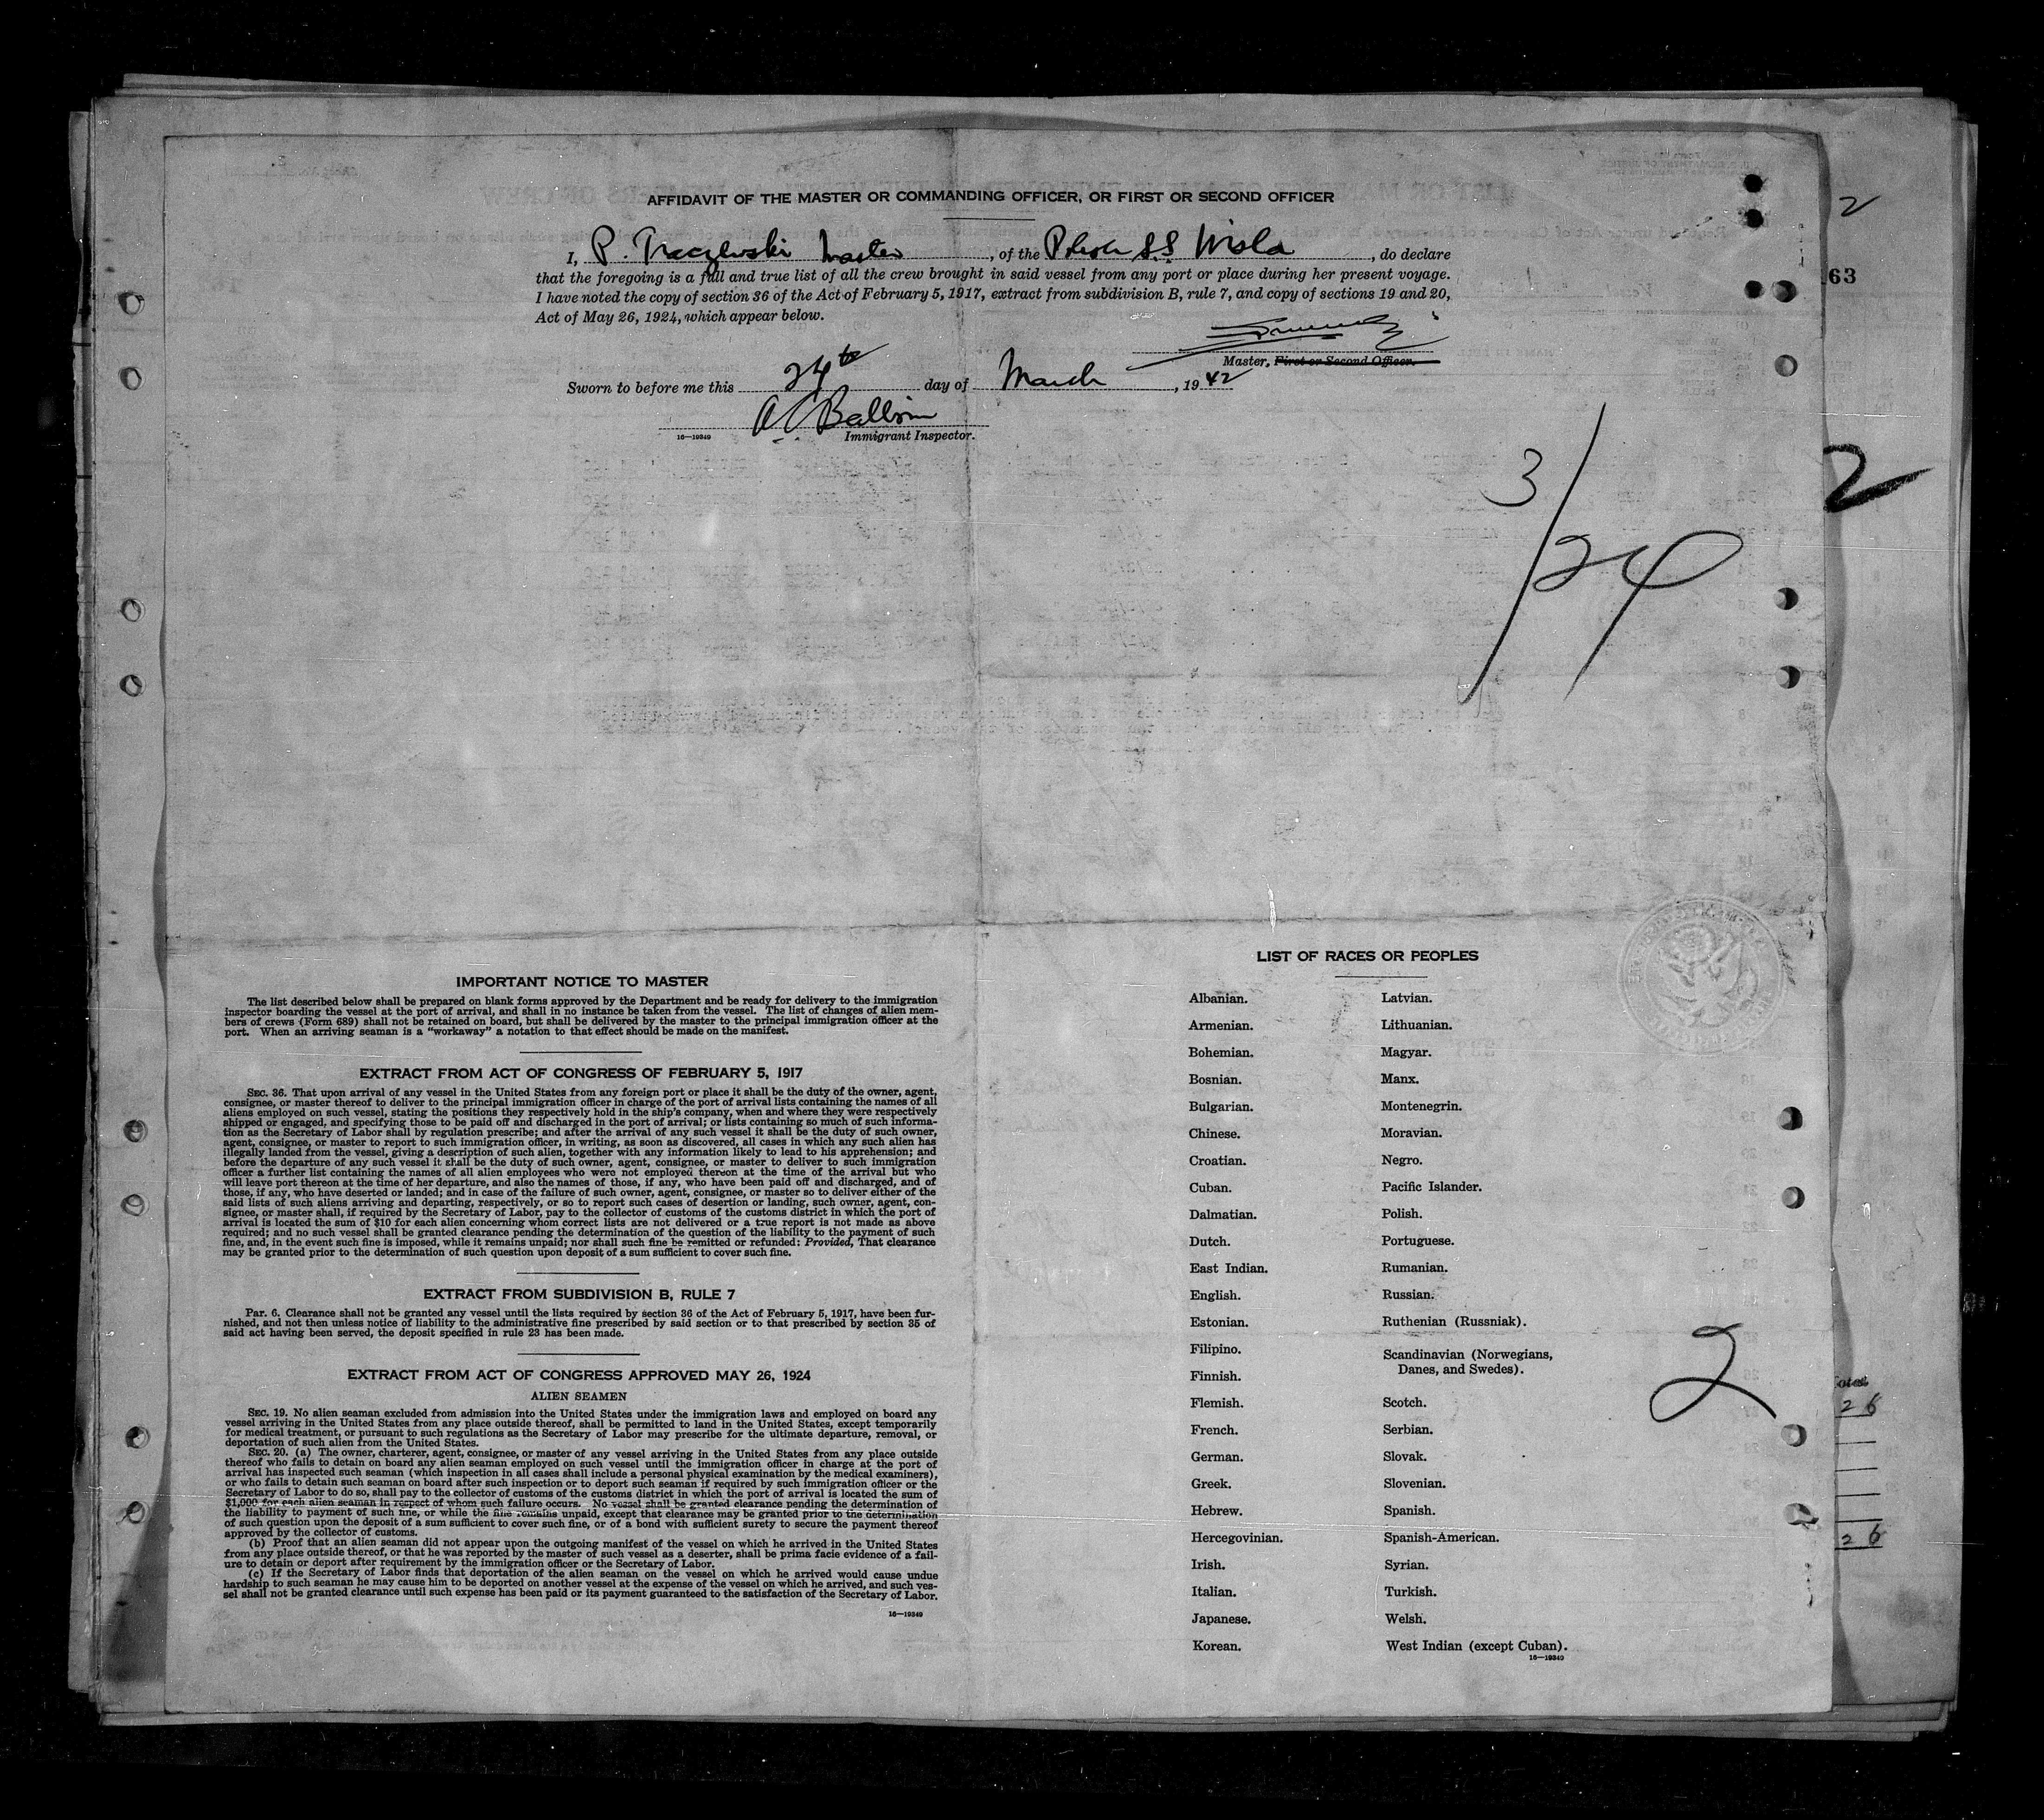 AFFIDAVIT OF THE MASTER OR COMMANDING OFFICER, OR FIRST OR SECOND OFFICER
I, P. Traczewski Master, of the Polish S.S. Wisla, do declare
that the foregoing is a full and true list of all the crew brought in said vessel from any port or place during her present voyage.
I have noted the copy of section 36 of the Act of February 5, 1917, extract from subdivision B, rule 7, and copy of sections 19 and 20,
Act of May 26, 1924, which appear below.
Master, First or Second Officer.
Sworn to before me this 24th day of March, 1942
16—19349 Immigrant Inspector.
3/24
2
2
63
IMPORTANT NOTICE TO MASTER
The list described below shall be prepared on blank forms approved by the Department and be ready for delivery to the immigration
inspector boarding the vessel at the port of arrival, and shall in no instance be taken from the vessel. The list of changes of alien mem-
bers of crews (Form 689) shall not be retained on board, but shall be delivered by the master to the principal immigration officer at the
port. When an arriving seaman is a "workaway" a notation to that effect should be made on the manifest.
EXTRACT FROM ACT OF CONGRESS OF FEBRUARY 5, 1917
SEC. 36. That upon arrival of any vessel in the United States from any foreign port or place it shall be the duty of the owner, agent,
consignee, or master thereof to deliver to the principal immigration officer in charge of the port of arrival lists containing the names of all
aliens employed on such vessel, stating the positions they respectively hold in the ship's company, when and where they were respectively
shipped or engaged, and specifying those to be paid off and discharged in the port of arrival; or lists containing so much of such informa-
tion as the Secretary of Labor shall by regulation prescribe; and after the arrival of any such vessel it shall be the duty of such owner,
agent, consignee, or master to report to such immigration officer, in writing, as soon as discovered, all cases in which any such alien has
illegally landed from the vessel, giving a description of such alien, together with any information likely to lead to his apprehension; and
before the departure of any such vessel it shall be the duty of such owner, agent, consignee, or master to deliver to such immigration
officer a further list containing the names of all alien employees who were not employed thereon at the time of the arrival but who
will leave port thereon at the time of her departure, and also the names of those, if any, who have been paid off and discharged, and of
those, if any, who have deserted or landed; and in case of the failure of such owner, agent, consignee, or master so to deliver either of the
said lists of such aliens arriving and departing, respectively, or so to report such cases of desertion or landing, such owner, agent, con-
signee, or master shall, if required by the Secretary of Labor, pay to the collector of customs of the customs district in which the port of
arrival is located the sum of $10 for each alien concerning whom correct lists are not delivered or a true report is not made as above
required; and no such vessel shall be granted clearance pending the determination of the question of the liability to the payment of such
fine, and, in the event such fine is imposed, while it remains unpaid; nor shall such fine be remitted or refunded: Provided, That clearance
may be granted prior to the determination of such question upon deposit of a sum sufficient to cover such fine.
EXTRACT FROM SUBDIVISION B, RULE 7
Par. 6. Clearance shall not be granted any vessel until the lists required by section 36 of the Act of February 5, 1917, have been fur-
nished, and not then unless notice of liability to the administrative fine prescribed by said section or to that prescribed by section 35 of
said act having been served, the deposit specified in rule 23 has been made.
EXTRACT FROM ACT OF CONGRESS APPROVED MAY 26, 1924
ALIEN SEAMEN
SEC. 19. No alien seaman excluded from admission into the United States under the immigration laws and employed on board any
vessel arriving in the United States from any place outside thereof, shall be permitted to land in the United States, except temporarily
for medical treatment, or pursuant to such regulations as the Secretary of Labor may prescribe for the ultimate departure, removal, or
deportation of such alien from the United States.
SEC. 20. (a) The owner, charterer, agent, consignee, or master of any vessel arriving in the United States from any place outside
thereof who fails to detain on board any alien seaman employed on such vessel until the immigration officer in charge at the port of
arrival has inspected such seaman (which inspection in all cases shall include a personal physical examination by the medical examiners),
or who fails to detain such seaman on board after such inspection or to deport such seaman if required by such immigration officer or the
Secretary of Labor to do so, shall pay to the collector of customs of the customs district in which the port of arrival is located the sum of
$1,000 for each alien seaman in respect of whom such failure occurs. No vessel shall be granted clearance pending the determination of
the liability to payment of such fine, or while the fine remains unpaid, except that clearance may be granted prior to the determination
of such question upon the deposit of a sum sufficient to cover such fine, or of a bond with sufficient surety to secure the payment thereof
approved by the collector of customs.
(b) Proof that an alien seaman did not appear upon the outgoing manifest of the vessel on which he arrived in the United States
from any place outside thereof, or that he was reported by the master of such vessel as a deserter, shall be prima facie evidence of a fail-
ure to detain or deport after requirement by the immigration officer or the Secretary of Labor.
(c) If the Secretary of Labor finds that deportation of the alien seaman on the vessel on which he arrived would cause undue
hardship to such seaman he may cause him to be deported on another vessel at the expense of the vessel on which he arrived, and such ves-
sel shall not be granted clearance until such expense has been paid or its payment guaranteed to the satisfaction of the Secretary of Labor.
16—19349
LIST OF RACES OR PEOPLES
Albanian.
Armenian.
Bohemian.
Bosnian.
Bulgarian.
Chinese.
Croatian.
Cuban.
Dalmatian.
Dutch.
East Indian.
English.
Estonian.
Filipino.
Finnish.
Flemish.
French.
German.
Greek.
Hebrew.
Hercegovinian.
Irish.
Italian.
Japanese.
Korean.
Latvian.
Lithuanian.
Magyar.
Manx.
Montenegrin.
Moravian.
Negro.
Pacific Islander.
Polish.
Portuguese.
Rumanian.
Russian.
Ruthenian (Russniak).
Scandinavian (Norwegians,
Danes, and Swedes).
Scotch.
Serbian.
Slovak.
Slovenian.
Spanish.
Spanish-American.
Syrian.
Turkish.
Welsh.
West Indian (except Cuban).
16—19349
2
26
26